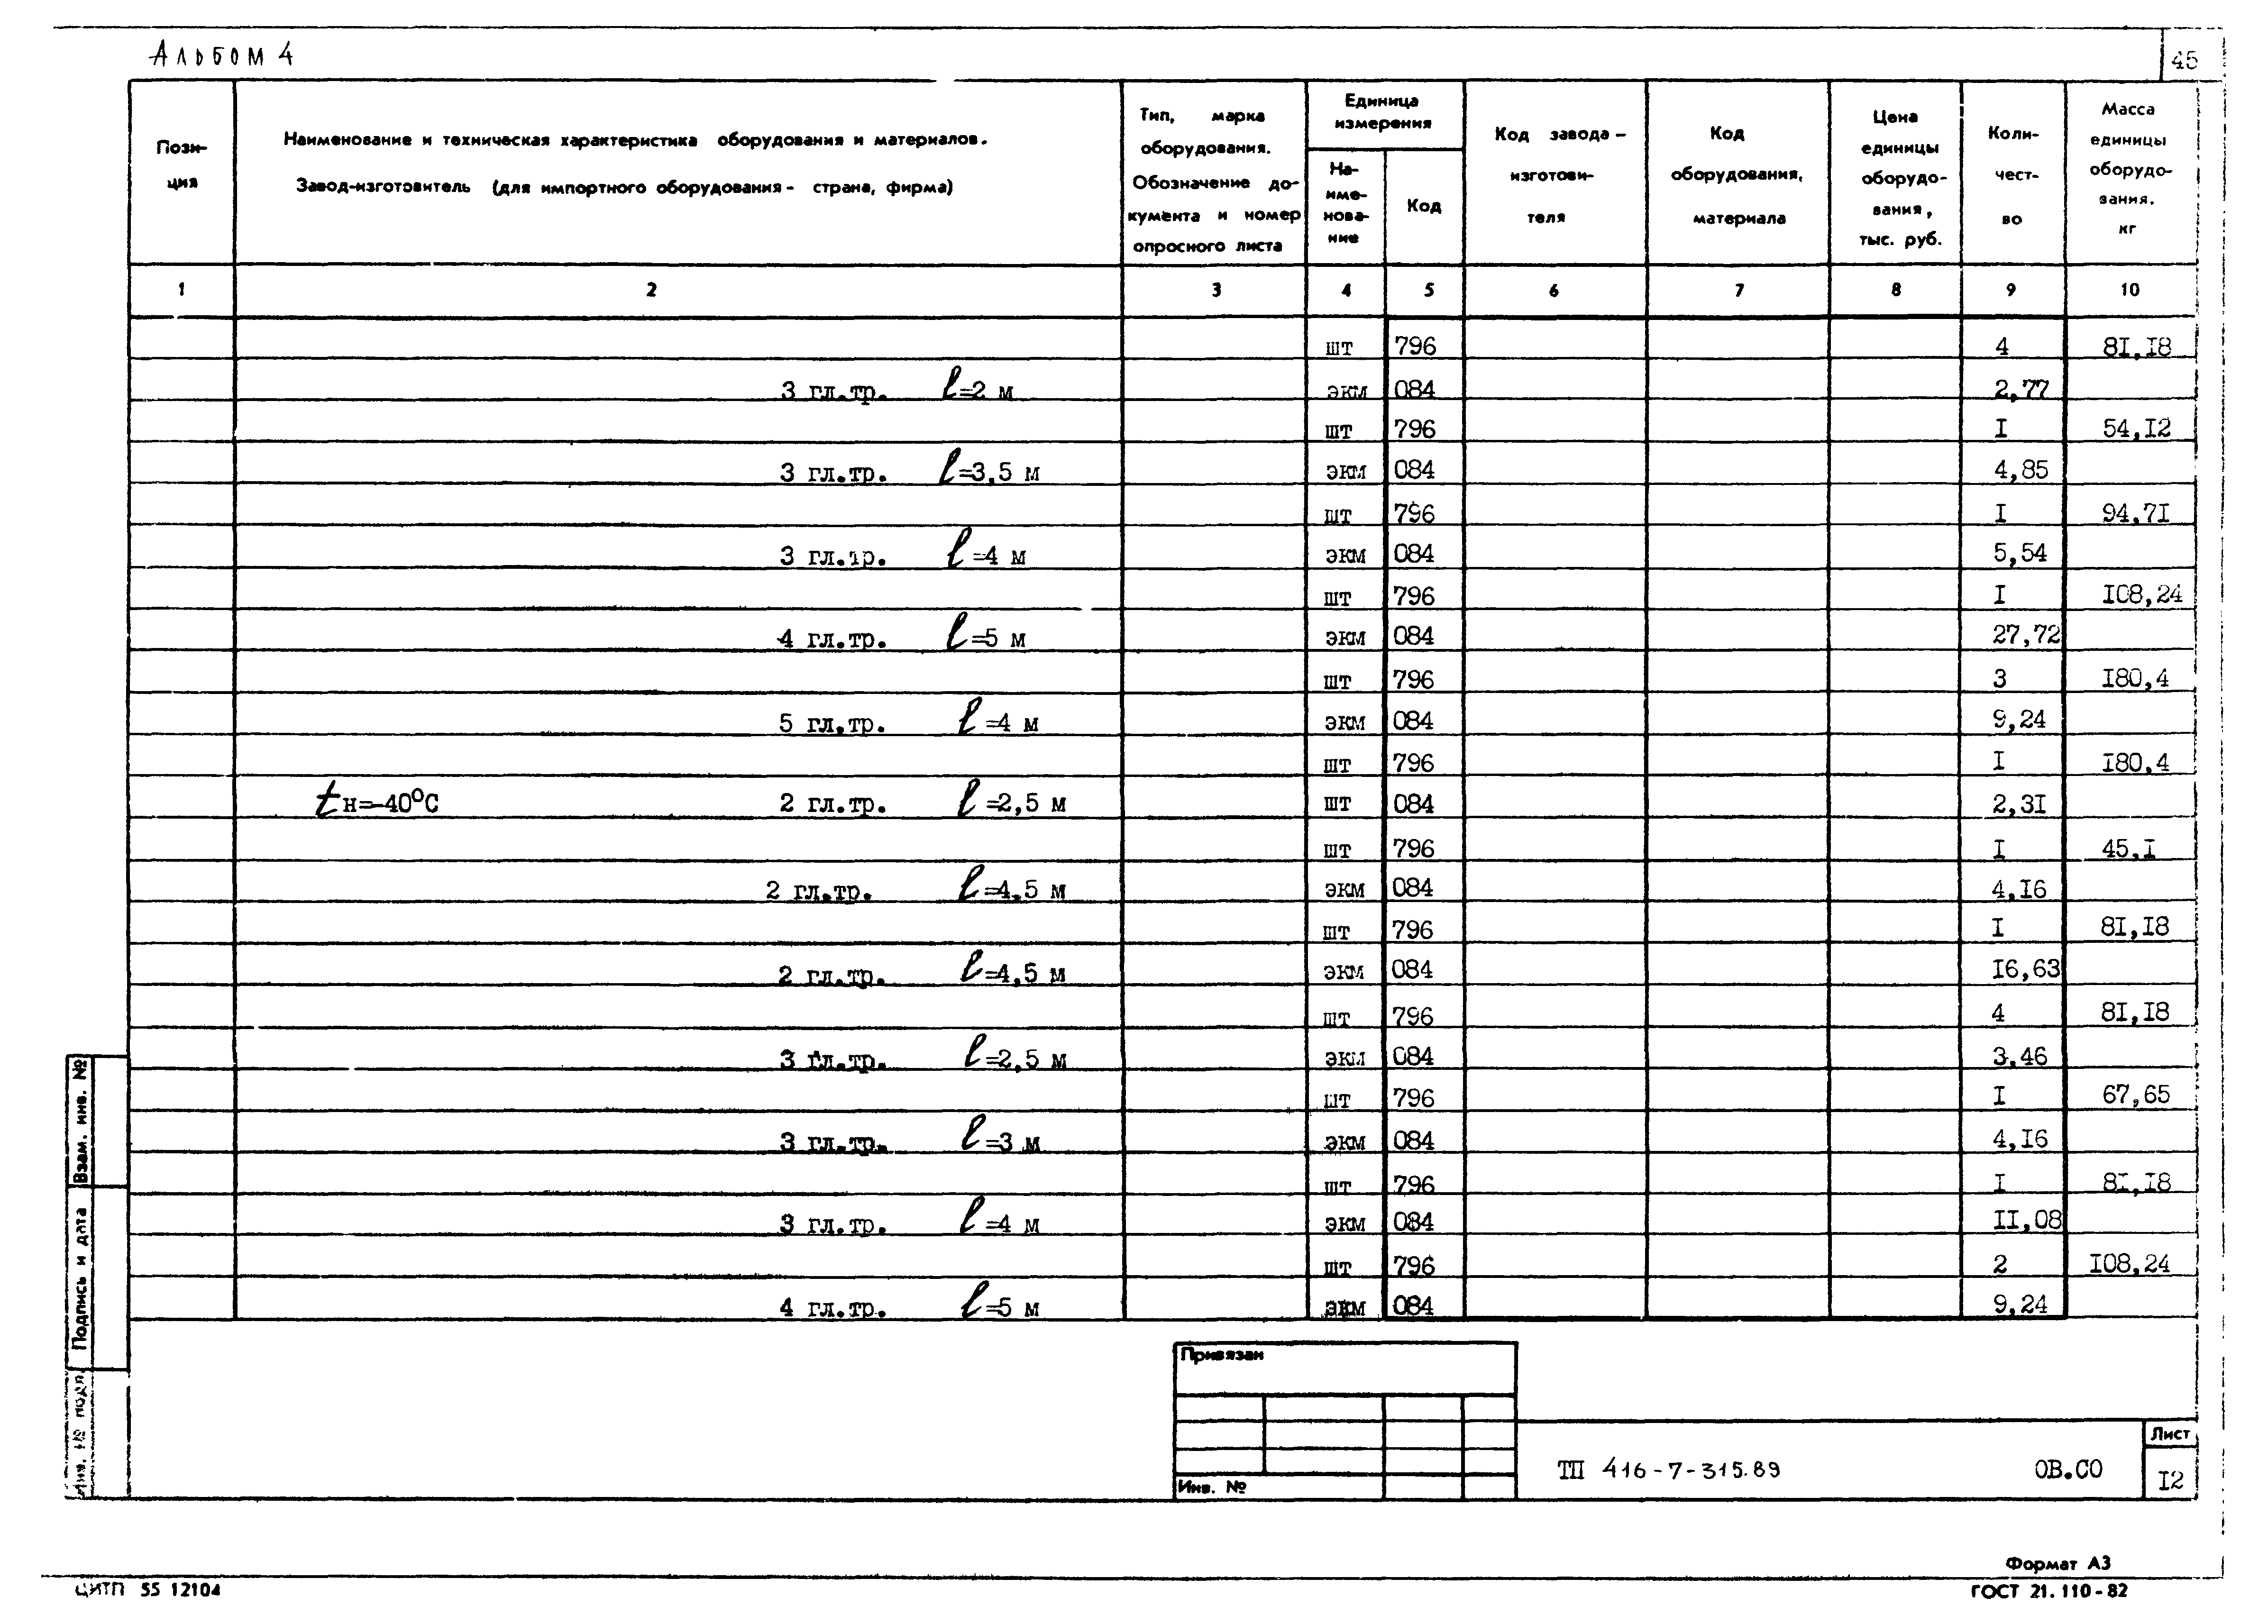 Альбом 4
45
Пози-
ция
Наименование и техническая характеристика оборудования и материалов.
Завод-изготовитель (для импортного оборудования - страна, фирма)
Тип, марка
оборудования.
Обозначение до-
кумента и номер
опросного листа
Единица
измерения
На-
име-
нова-
ние
Код
Код завода -
изготови-
теля
Код
оборудования,
материала
Цена
единицы
оборудо-
вания,
тыс. руб.
Коли-
чест-
во
Масса
единицы
оборудо-
вания.
кг
1 2 3 4 5 6 7 8 9 10
шт 796 4 8I,I8
3 гл.тр. l=2 м экм 084 2,77
шт 796 I 54,I2
3 гл.тр. l=3,5 м экм 084 4,85
шт 796 I 94,7I
3 гл.тр. l=4 м экм 084 5,54
шт 796 I I08,24
4 гл.тр. l=5 м экм 084 27,72
шт 796 3 I80,4
5 гл.тр. l=4 м экм 084 9,24
шт 796 I I80,4
tн=-40°С 2 гл.тр. l=2,5 м шт 084 2,3I
шт 796 I 45,I
2 гл.тр. l=4,5 м экм 084 4,I6
шт 796 I 8I,I8
2 гл.тр. l=4,5 м экм 084 I6,63
шт 796 4 8I,I8
3 гл.тр. l=2,5 м экм 084 3,46
шт 796 I 67,65
3 гл.тр. l=3 м экм 084 4,I6
шт 796 I 8I,I8
3 гл.тр. l=4 м экм 084 II,08
шт 796 2 I08,24
4 гл.тр. l=5 м экм 084 9,24
Взам. инв. №
Подпись и дата
Инв. № подл.
Привязан
Инв. №
ТП 416-7-315.89 ОВ.СО
Лист
I2
Формат А3
ЦИТП 55 12104
ГОСТ 21.110-82